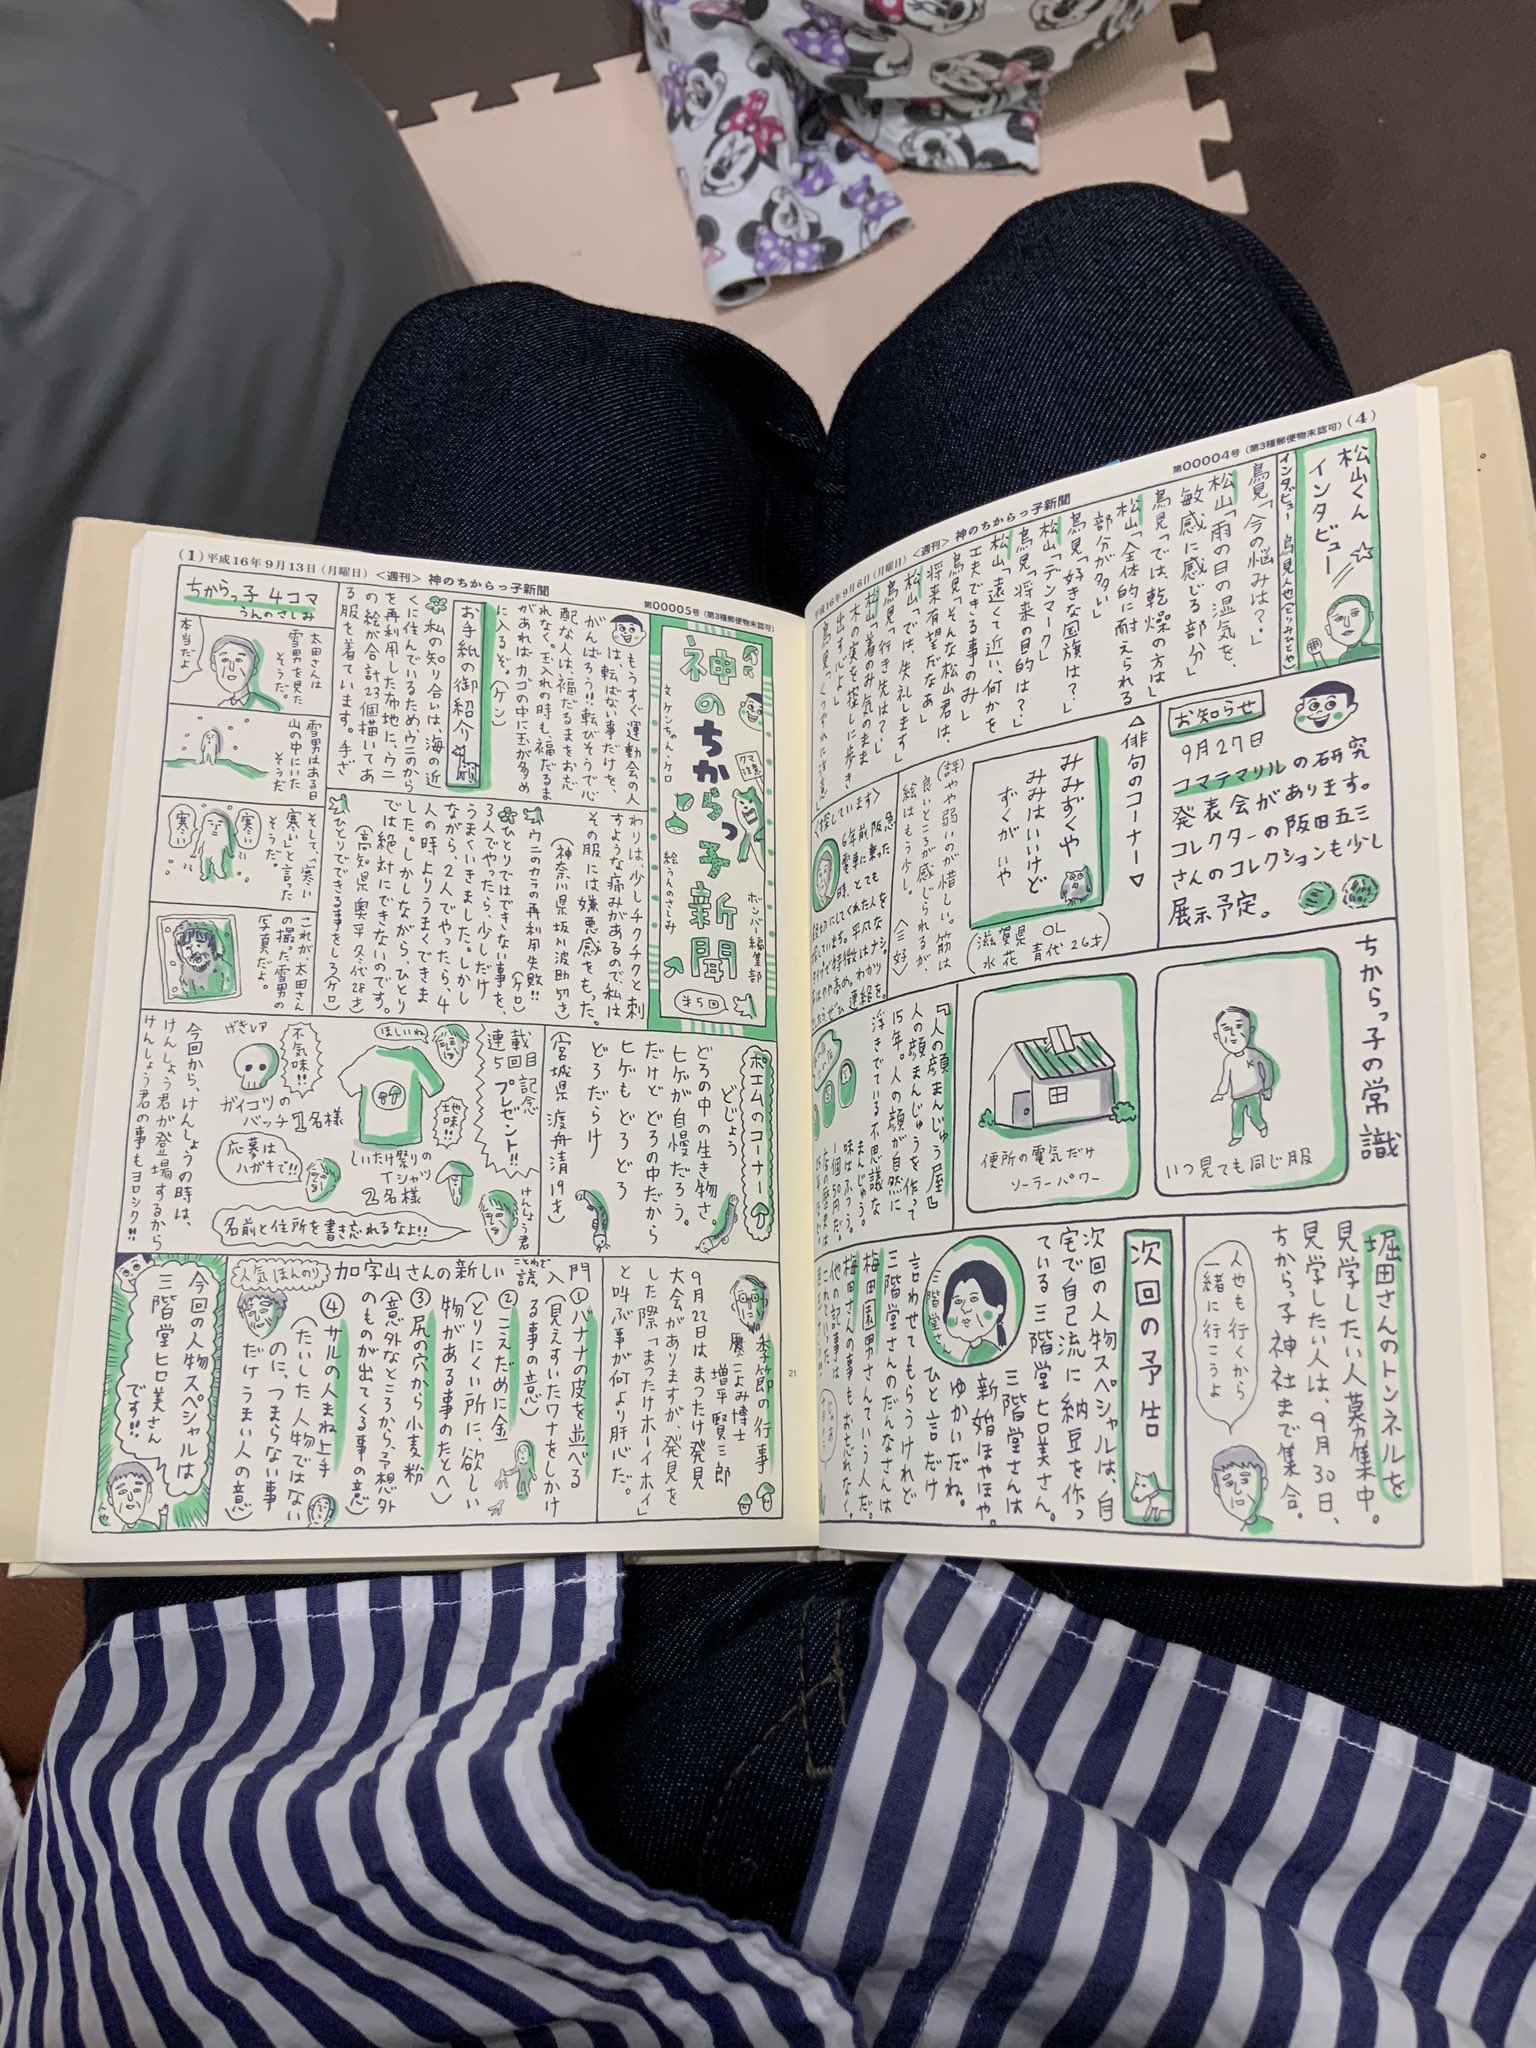 (4)
第00004号(第3種郵便物未認可)
<週刊> 神のちからっ子新聞
平成16年9月6日(月曜日)
松山くん
インタビュー
インタビュー 鳥見人也(とりみひとや)
鳥見「今の悩みは?」
松山「雨の日の湿気を、
敏感に感じる部分」
鳥見「では、乾燥の方は」
松山「全体的に耐えられる
部分が多い」
鳥見「好きな国旗は?」
松山「デンマーク」
鳥見「将来の目的は?」
松山「遠くて近い、何かを
工夫できる事のみ」
鳥見「そんな松山君は、
将来有望だなぁ」
松山「では、失礼します」
鳥見「行き先は?」
松山「着のみ気のまま
木の実を探しに歩き
出すでしょ」
お知らせ
9月27日
コマテマリルの研究
発表会があります。
コレクターの阪田五三
さんのコレクションも少し
展示予定。
△俳句のコーナー▽
みみずくや
みみはいいけど
ずくが いや
(滋賀県 OL
水花 青代 26才)
(評)やや弱いのが惜しい。筋は
良いところが感じられるが、
絵はもう少し。
(三好)
ちからっ子の常識
いつ見ても同じ服
便所の電気だけ
ソーラーパワー
『人の顔まんじゅう屋』
人の顔まんじゅうを作って
15年。人の顔が自然に
浮きでている不思議な
まんじゅう。
味はふつう。
堀田さんのトンネルを
見学したい人募集中。
見学したい人は、9月30日、
ちからっ子神社まで集合。
人也も行くから
一緒に行こうよ
次回の予告
次回の人物スペシャルは、自
宅で自己流に納豆を作っ
ている三階堂ヒロ美さん。
三階堂さんは
新婚ほやほや。
ゆかいだね。
ひと言だけ
言わせてもらうけれど
三階堂さんのだんなさんは
梅田園男さんていう人だ。
梅田さんの事もお忘れなく。
三階堂さん
(1)平成16年9月13日(月曜日)<週刊> 神のちからっ子新聞
第00005号(第3種郵便物未認可)
神のちからっ子新聞
文 ケンちゃん・ケロ
絵 うんのさしみ
クマ注意
ボンバー編集部
第5回
もうすぐ運動会の人
は、転ばない事だけを、
がんばろう!!転びそうで心
配な人は、福だるまをお忘
れなく。玉入れの時も、福だるま
があればカゴの中に玉が多め
に入るぞ。(ケン)
お手紙の御紹介
私の知り合いは、海の近
くに住んでいるため、ウニのから
を再利用した布地に、ウニ
の絵が合計23個描いてあ
る服を着ています。手ざ
わりは、少しチクチクと刺
すような痛みがあるので、私は
その服には嫌悪感をもった。
(神奈川県 坂川波助 54才)
ウニのカラの再利用失敗!!(ケロ)
ひとりではできない事を、
3人でやったら、少しだけ
うまくいきました。しかし
ながら、2人でやったら、4
人の時よりうまくできま
した。しかしながら、ひとり
では絶対にできないのです。
(高知県 奥平冬代 28才)
ひとりでできる事をしろ(ケロ)
ちからっ子 4コマ
うんのさしみ
太田さんは
雪男を見た
そうだ。
本当だよ
雪男はある日
山の中にいた
そうだ
そして、「寒い
寒い」と言った
そうだ。
寒い
寒い
これが、太田さん
の撮った雪男の
写真だよ。
ポエムのコーナー
どじょう
どろの中の生き物さ。
ヒゲが自慢だろう。
だけど どろの中だから
ヒゲも どろどろ
どろだらけ
(宮城県 渡舟清 19才)
連載5回目記念
プレゼント!!
けんしょう君
ほしいね
地味!!
しいたけ祭りの
Tシャツ
2名様
不気味!!
げきレア
ガイコツの
バッチ 1名様
応募は
ハガキで!!
名前と住所を書き忘れるなよ!!
今回から、けんしょうの時は、
けんしょう君が登場するから
けんしょう君の事もヨロシク!!
季節の行事
こよみ博士
増平賢三郎
9月22日は まつたけ発見
大会がありますが、発見を
した際「まつたけホーイホイ」
と叫ぶ事が何より肝心だ。
加字山さんの新しい諺入門
ことわざ
人気ほんのり
①バナナの皮を並べる
(見えすいたワナをしかけ
る事の意)
②こえだめに金
(とりにくい所に、欲しい
物がある事のたとへ)
③尻の穴から小麦粉
(意外なところから、予想外
のものが出てくる事の意)
④サルの人まね上手
(たいした人物ではない
のに、つまらない事
だけうまい人の意)
今回の人物スペシャルは
三階堂ヒロ美さん
です!!
人也
21